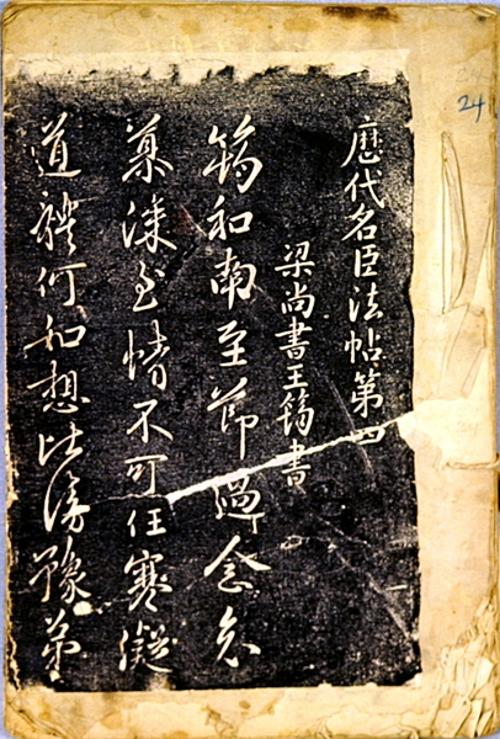 24
曆代名臣法帖第四
梁尚書王筠書
筠和南至節過念哀
慕深至情不可任寒凝
道體何如想比清豫弟